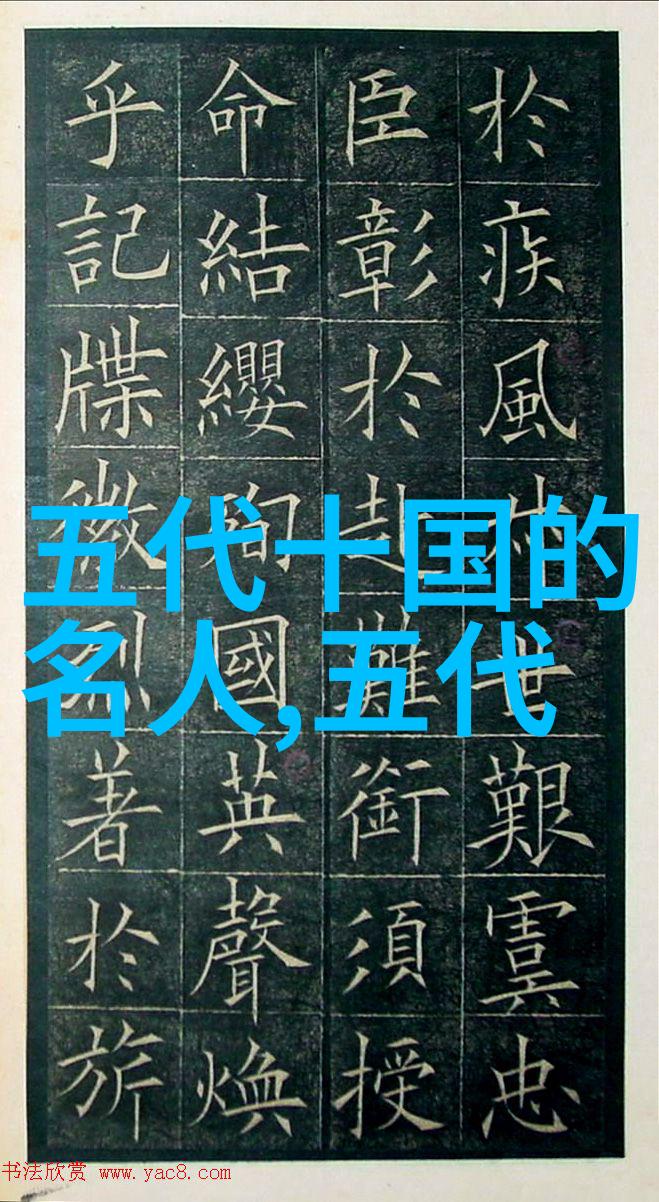 於疾風叔世艱虞忠
臣彰於赴難銜須授
命結纓殉國英聲煥
乎記牒徽烈著於旂
五代十国的
名人,五代
书法欣赏 www.yac8.com